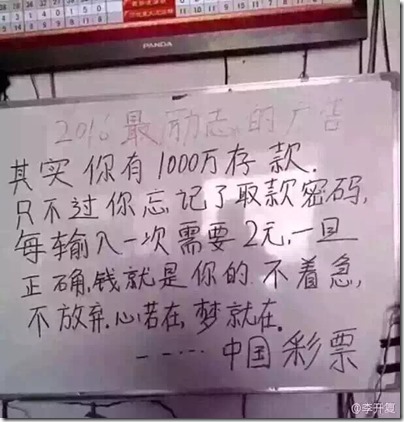 PANDA
2016最励志的广告
其实你有1000万存款.
只不过你忘记了取款密码,
每输入一次需要2元,一旦
正确,钱就是你的.不着急,
不放弃.心若在,梦就在.
-----中国彩票
@李开寛